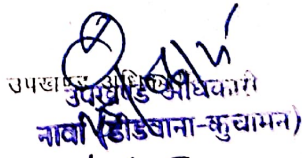 उपखण्ड अधिकारी
उपखण्ड अधिकारी
नावां (डीडवाना-कुचामन)